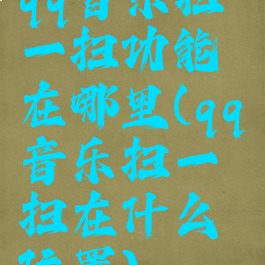 qq音乐扫
一扫功能
在哪里(qq
音乐扫一
扫在什么
位置)